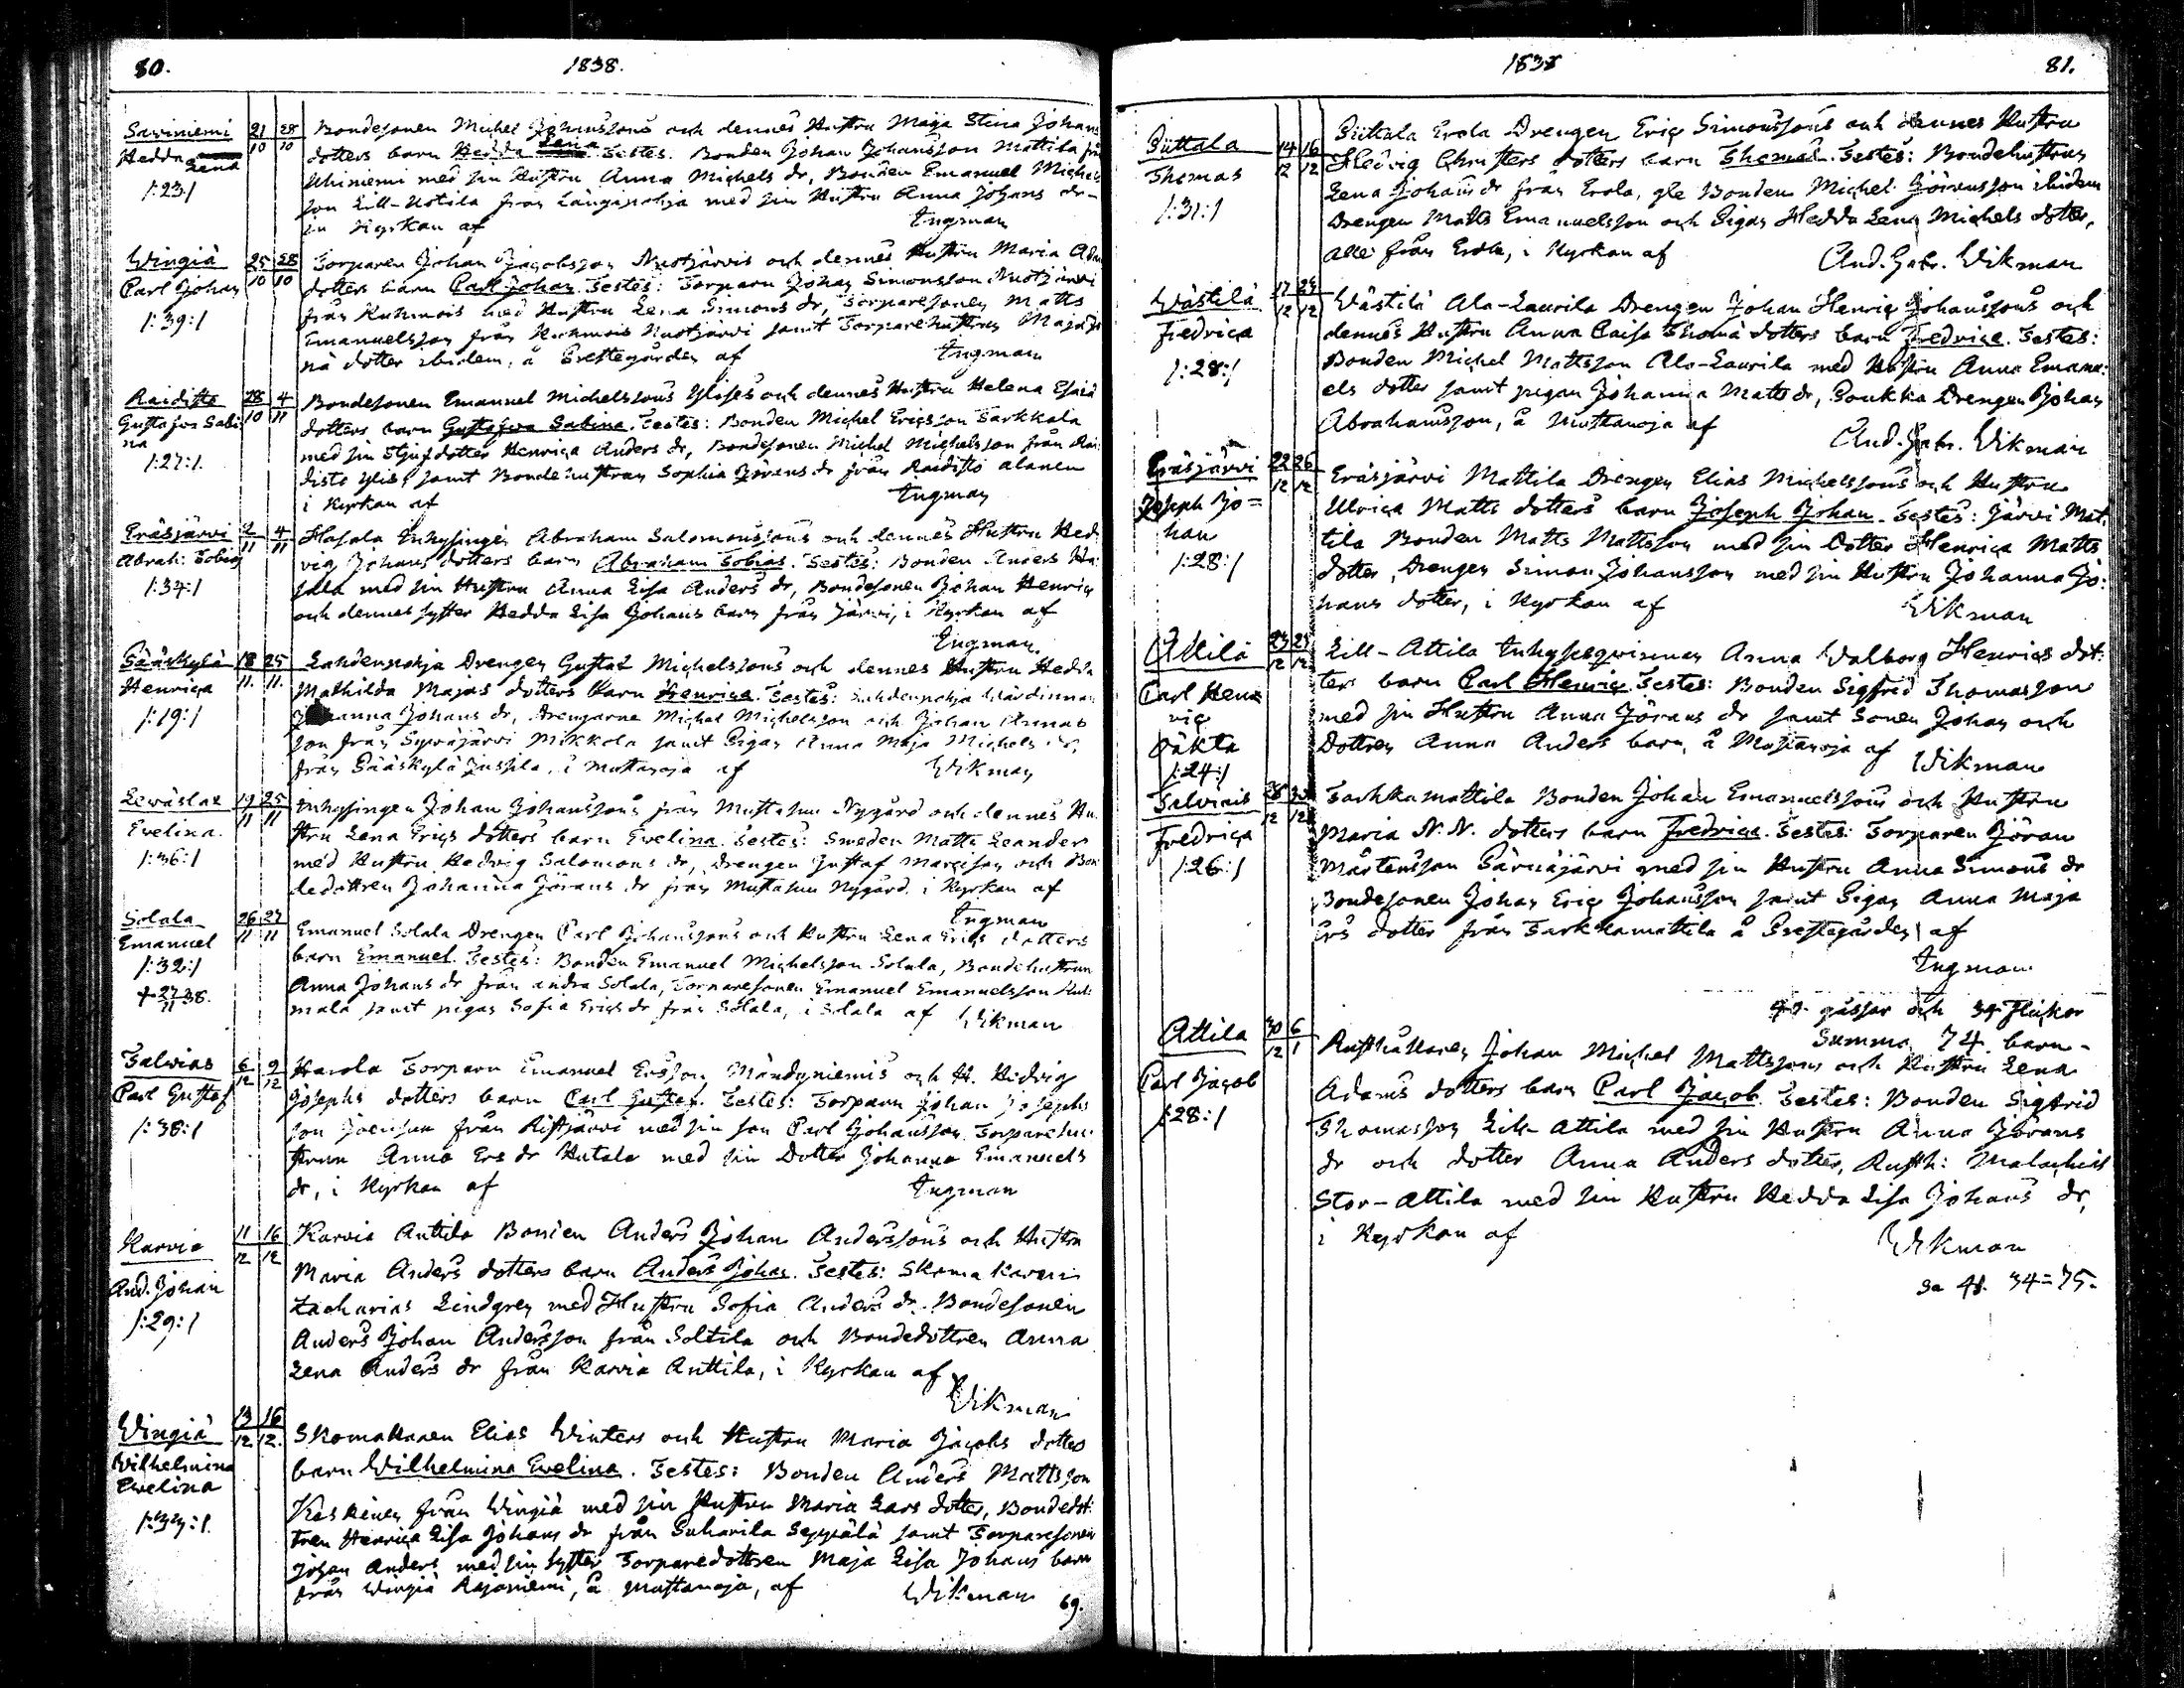 80.
1838.
Saviniemi
Hedda
Lena
1:23:1
21 28
10 10
Bondesonen Michel Johanssons och dennes Hustru Maja Stina Johans
dotters barn Hedda Lena Testes. Bonden Johan Johansson Mattila från
Uhiniemi med sin Hustru Anna Michels dr, Bonden Emanuel Michels
son Lill-Kotila från Längänpohja med sin Hustru Anna Johans dr
in Kyrkan af
Ingman
Wingiä
Carl Johan
1:39:1
25 28
10 10
Torparen Johan Jacobsson Nuotjärvis och dennes Hustru Maria Adam
dotters barn Carl Johan. Testes: Torparn Johan Simonsson Nuotjärvi
från Kuhmois med Hustru Lena Simons dr, Torparesonen Matts
Emanuelsson från Kuhmois Nuotjärvi samt Torparehustrun Maja
nä dotter ibidem, å Prestegården af
Ingman
Raidisto
Gustafva Sabi
na
1:27:1.
28 4
10 11
Bondesonen Emanuel Michelssons Ylises och dennes Hustru Helena Esaia
dotters barn Gustafva Sabina. Testes: Bonden Michel Ericsson Sarkkala
med sin Stjufdotter Henrica Anders dr, Bondesonen Michel Michelsson från Rai
disto Ylis, samt Bondehustrun Sophia Görans dr från Raidisto alanen
i Kyrkan af
Ingman
Eräsjärvi
Abrah: Tobias
1:34:1
2 4
11 11
Hasala Inhysingen Abraham Salomonssons och dennes Hustru Hed
vig Johans dotters barn Abraham Tobias. Testes: Bonden Anders Ha
sala med sin Hustru Anna Lisa Anders dr, Bondesonen Johan Henric
och dennes syster Hedda Lisa Johans barn från Järvi, i Kyrkan af
Ingman.
Pääskylä
Henrica
1:19:1
18 25
11. 11.
Lahdenpohja Drengen Gustaf Michelssons och dennes Hustru Hedda
Mathilda Majas dotters barn Henrica. Testes: Lahdenpohja Wärdinnan
Johanna Johans dr, Drengarne Michel Michelsson och Johan
son från Sywäjärvi Mikkola samt Pigan Anna Maja Michels dr,
från Pääskylä Jussila, i Mustanoja af
Wikman
Lewäslax
Evelina.
1:36:1
19 25
11 11
Inhysingen Johan Johanssons från Mustahu Nygård och dennes Hu
stru Lena Erics dotters barn Evelina. Testes: Smeden Matts Leander
med Hustru Hedvig Salomons dr, Drengen Gustaf Marcisson och Bon
dedottren Johanna Görans dr från Mustahu Nygård, i Kyrkan af
Ingman
Solala
Emanuel
1:32:1
+ 27/11 38.
26 27
11 11
Emanuel Solala Drengen Carl Johanssons och Hustru Lena Erics dotters
barn Emanuel. Testes: Bonden Emanuel Michelsson Solala, Bondehustrun
Anna Johans dr från andra Solala, Torparesonen Emanuel Emanuelsson
mala samt pigan Sofia Erics dr från Solala, i Solala af
Wikman
Salvias
Carl Gustaf
1:38:1
6 9
12 12
Harola Torparn Emanuel Ersson Mändyniemis och H. Hedvig
Josephs dotters barn Carl Gustaf. Testes: Torparn Johan Josephs
son från Ristjärvi med sin son Carl Johansson Torparehu
strun Anna Ers dr Hatala med sin Dotter Johanna Emanuels
dr, i Kyrkan af
Ingman
Karvia
And. Johan
1:29:1
11 16
12 12
Karvia Anttila Bonden Anders Johan Anderssons och Hustru
Maria Anders dotters barn Anders Johan. Testes: Skomakaren
Zacharias Lindgren med Hustru Sofia Anders dr. Bondesonen
Anders Johan Andersson från Soltila och Bondedottren Anna
Lena Anders dr från Karvia Anttila, i Kyrkan af
Wikman
Wingiä
Wilhelmina
Evelina
1:33:1.
13 16
12 12.
Skomakaren Elias Winters och Hustru Maria Jacobs dotters
barn Wilhelmina Evelina. Testes: Bonden Anders Mattsson
Keskinen från Wingiä med sin Hustru Maria Lars dotter, Bondedot
tren Henrica Lisa Johans dr från Suharila Seppälä samt Torparesonen
Johan Anders med sin syster Torparedottren Maja Lisa Johans barn
från Wingiä Rajaniemi, å Mustanoja, af
Wikman
69.
1838
81.
Püttala
Thomas
1:31:1
14 16
12 12
Püttala Erola Drengen Eric Simonssons och dennes Hustru
Hedvig Christers dotters barn Thomas. Testes: Bondehustrun
Lena Johans dr från Erola, gle Bonden Michel Göransson ibidem
Drengen Matts Emanuelsson och Pigan Hedda Lena Michels dotter,
alle från Erola, i Kyrkan af
And. Gabr. Wikman
Wästilä
Fredrica
1:28:1
17 26
12 12
Wästilä Ala-Laurila Drengen Johan Henric Johanssons och
dennes Hustru Anna Caisa Thomä dotters barn Fredrica. Testes:
Bonden Michel Mattsson Ala-Laurila med Hustru Anna Emanu:
els dotter samt pigan Johanna Matts dr, Poukka Drengen Johan
Abrahamsson, å Mustanoja af
And. Gabr. Wikman
Eräsjärvi
Joseph Jo=
han
1:28:1
22 26
12 12
Eräsjärvi Mattila Drengen Elias Michelssons och Hustru
Ulrica Matts dotters barn Joseph Johan. Testes: Järvi Mat
tila Bonden Matts Mattsson med sin Dotter Henrica Matts
dotter, Drengen Simon Johansson med sin Hustru Johanna Jo:
hans dotter, i Kyrkan af
Wikman
Attila
Carl Hen
ric
Oäkta
1:24:1
12 12
Lill-Attila Inhysesqvinnan Anna Walborg Henrics dot:
ters barn Carl Henric. Testes: Bonden Sigfred Thomasson
med sin Hustru Anna Görans dr samt Sonen Johan och
Dottren Anna Anders barn, å Mustanoja af
Wikman
Salviais
Fredrica
1:26:1
12 12
Sarkkamattila Bonden Johan Emanuelssons och Hustru
Maria N. N. dotters barn Fredrica. Testes: Torparen Göran
Mårtensson Särnäjärvi med sin Hustru Anna Simons dr
Bondesonen Johan Eric Johansson samt Pigan Anna Maja
Ers dotter från Sarkkamattila å Prestegården af
Ingman
gåssar och 34 flickor
Summa 74 barn
Attila
Carl Jacob
1:28:1
30 6
12 1
Rusthållaren Johan Michel Mattssons och Hustru Lena
Adams dotters barn Carl Jacob. Testes: Bonden Sigfrid
Thomasson Lill-Attila med sin Hustru Anna Görans
dr och dotter Anna Anders dotter, Rusth: Malachias
Stor-Attila med sin Hustru Hedda Lisa Johans dr,
i Kyrkan af
Wikman
Sa 41. 34=75.